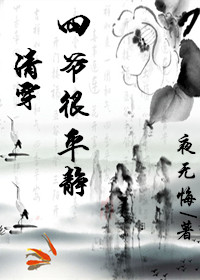 清穿
四爷很平静
夜无悔/著